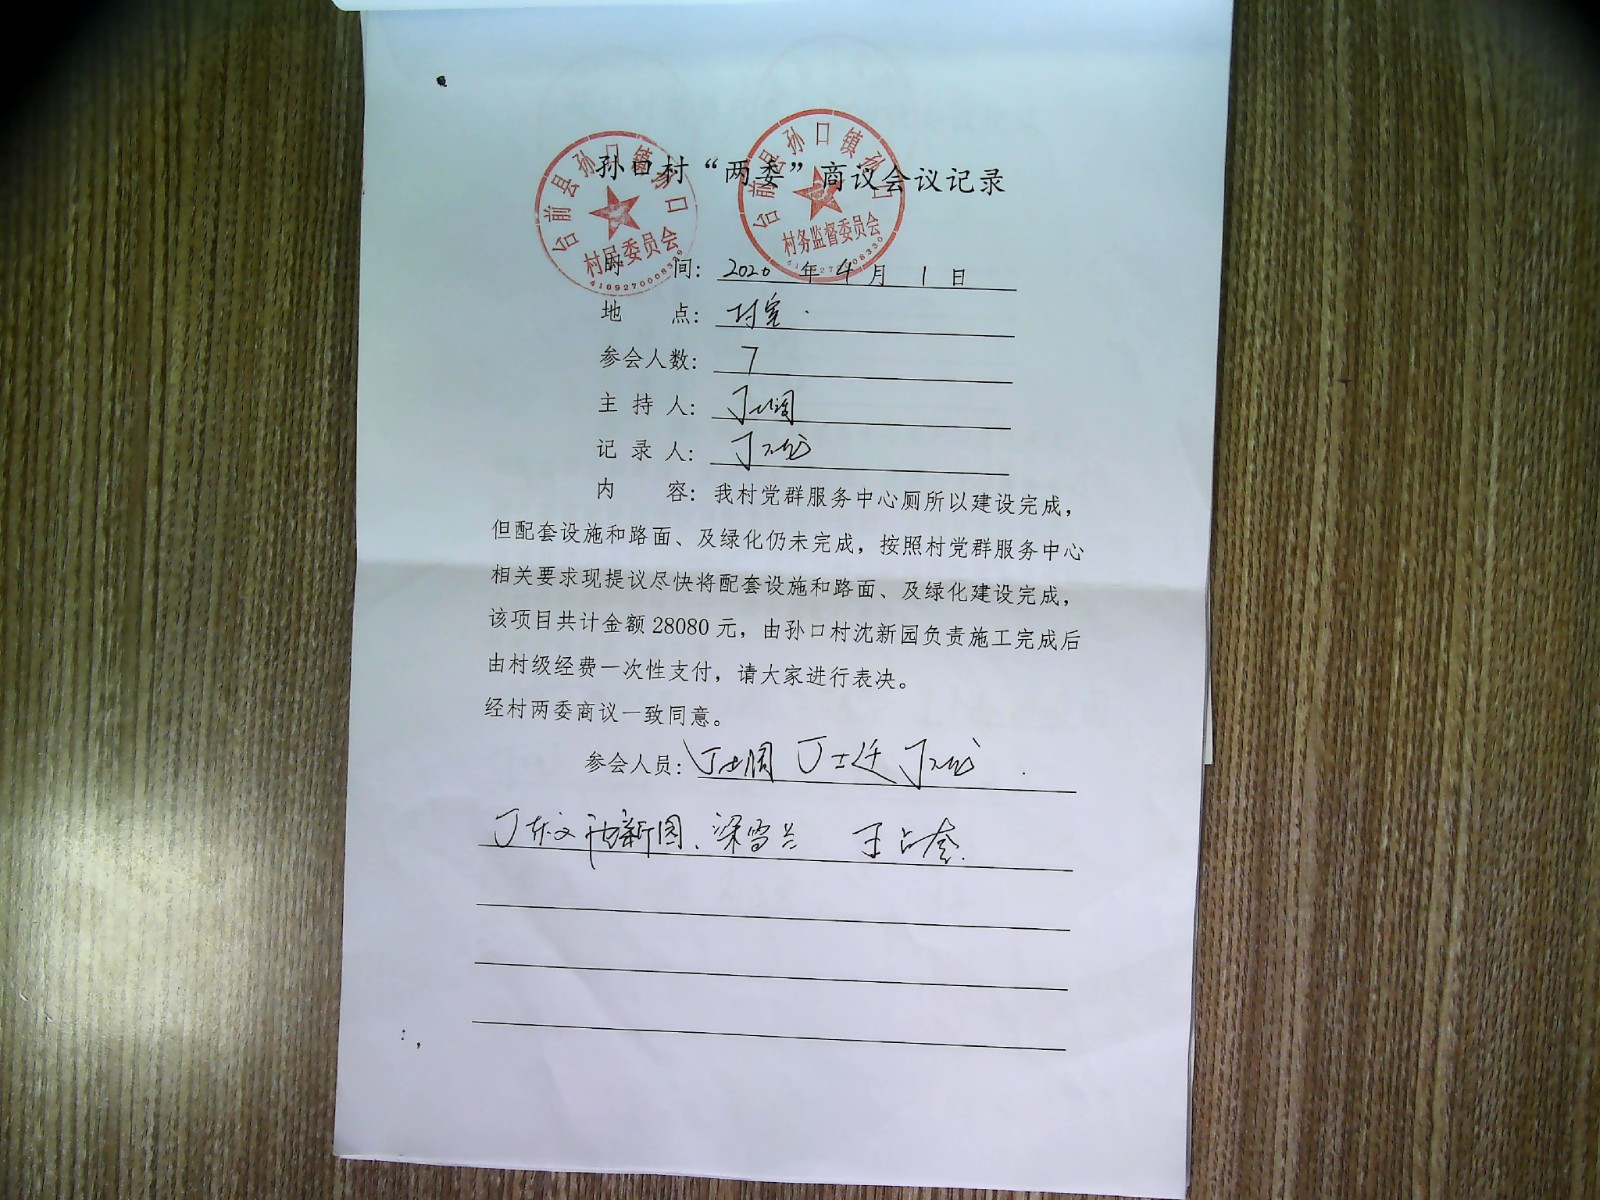 孙口村“两委”商议会议记录
台前县孙口镇孙口
村民委员会
台前县孙口镇孙口
村务监督委员会
时 间：2020 年 4 月 1 日
地 点：村室
参会人数：7
主 持 人：
记 录 人：
内 容：我村党群服务中心厕所以建设完成，
但配套设施和路面、及绿化仍未完成，按照村党群服务中心
相关要求现提议尽快将配套设施和路面、及绿化建设完成，
该项目共计金额 28080 元，由孙口村沈新园负责施工完成后
由村级经费一次性支付，请大家进行表决。
经村两委商议一致同意。
参会人员：丁士迁
丁东文 新园、梁雪兰 王占奎